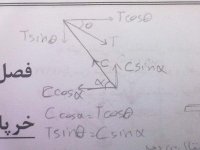 θ Tcosθ
Tsinθ T
C Csinα
فصل
Ccosα α
Ccosα=Tcosθ
Tsinθ=Csinα